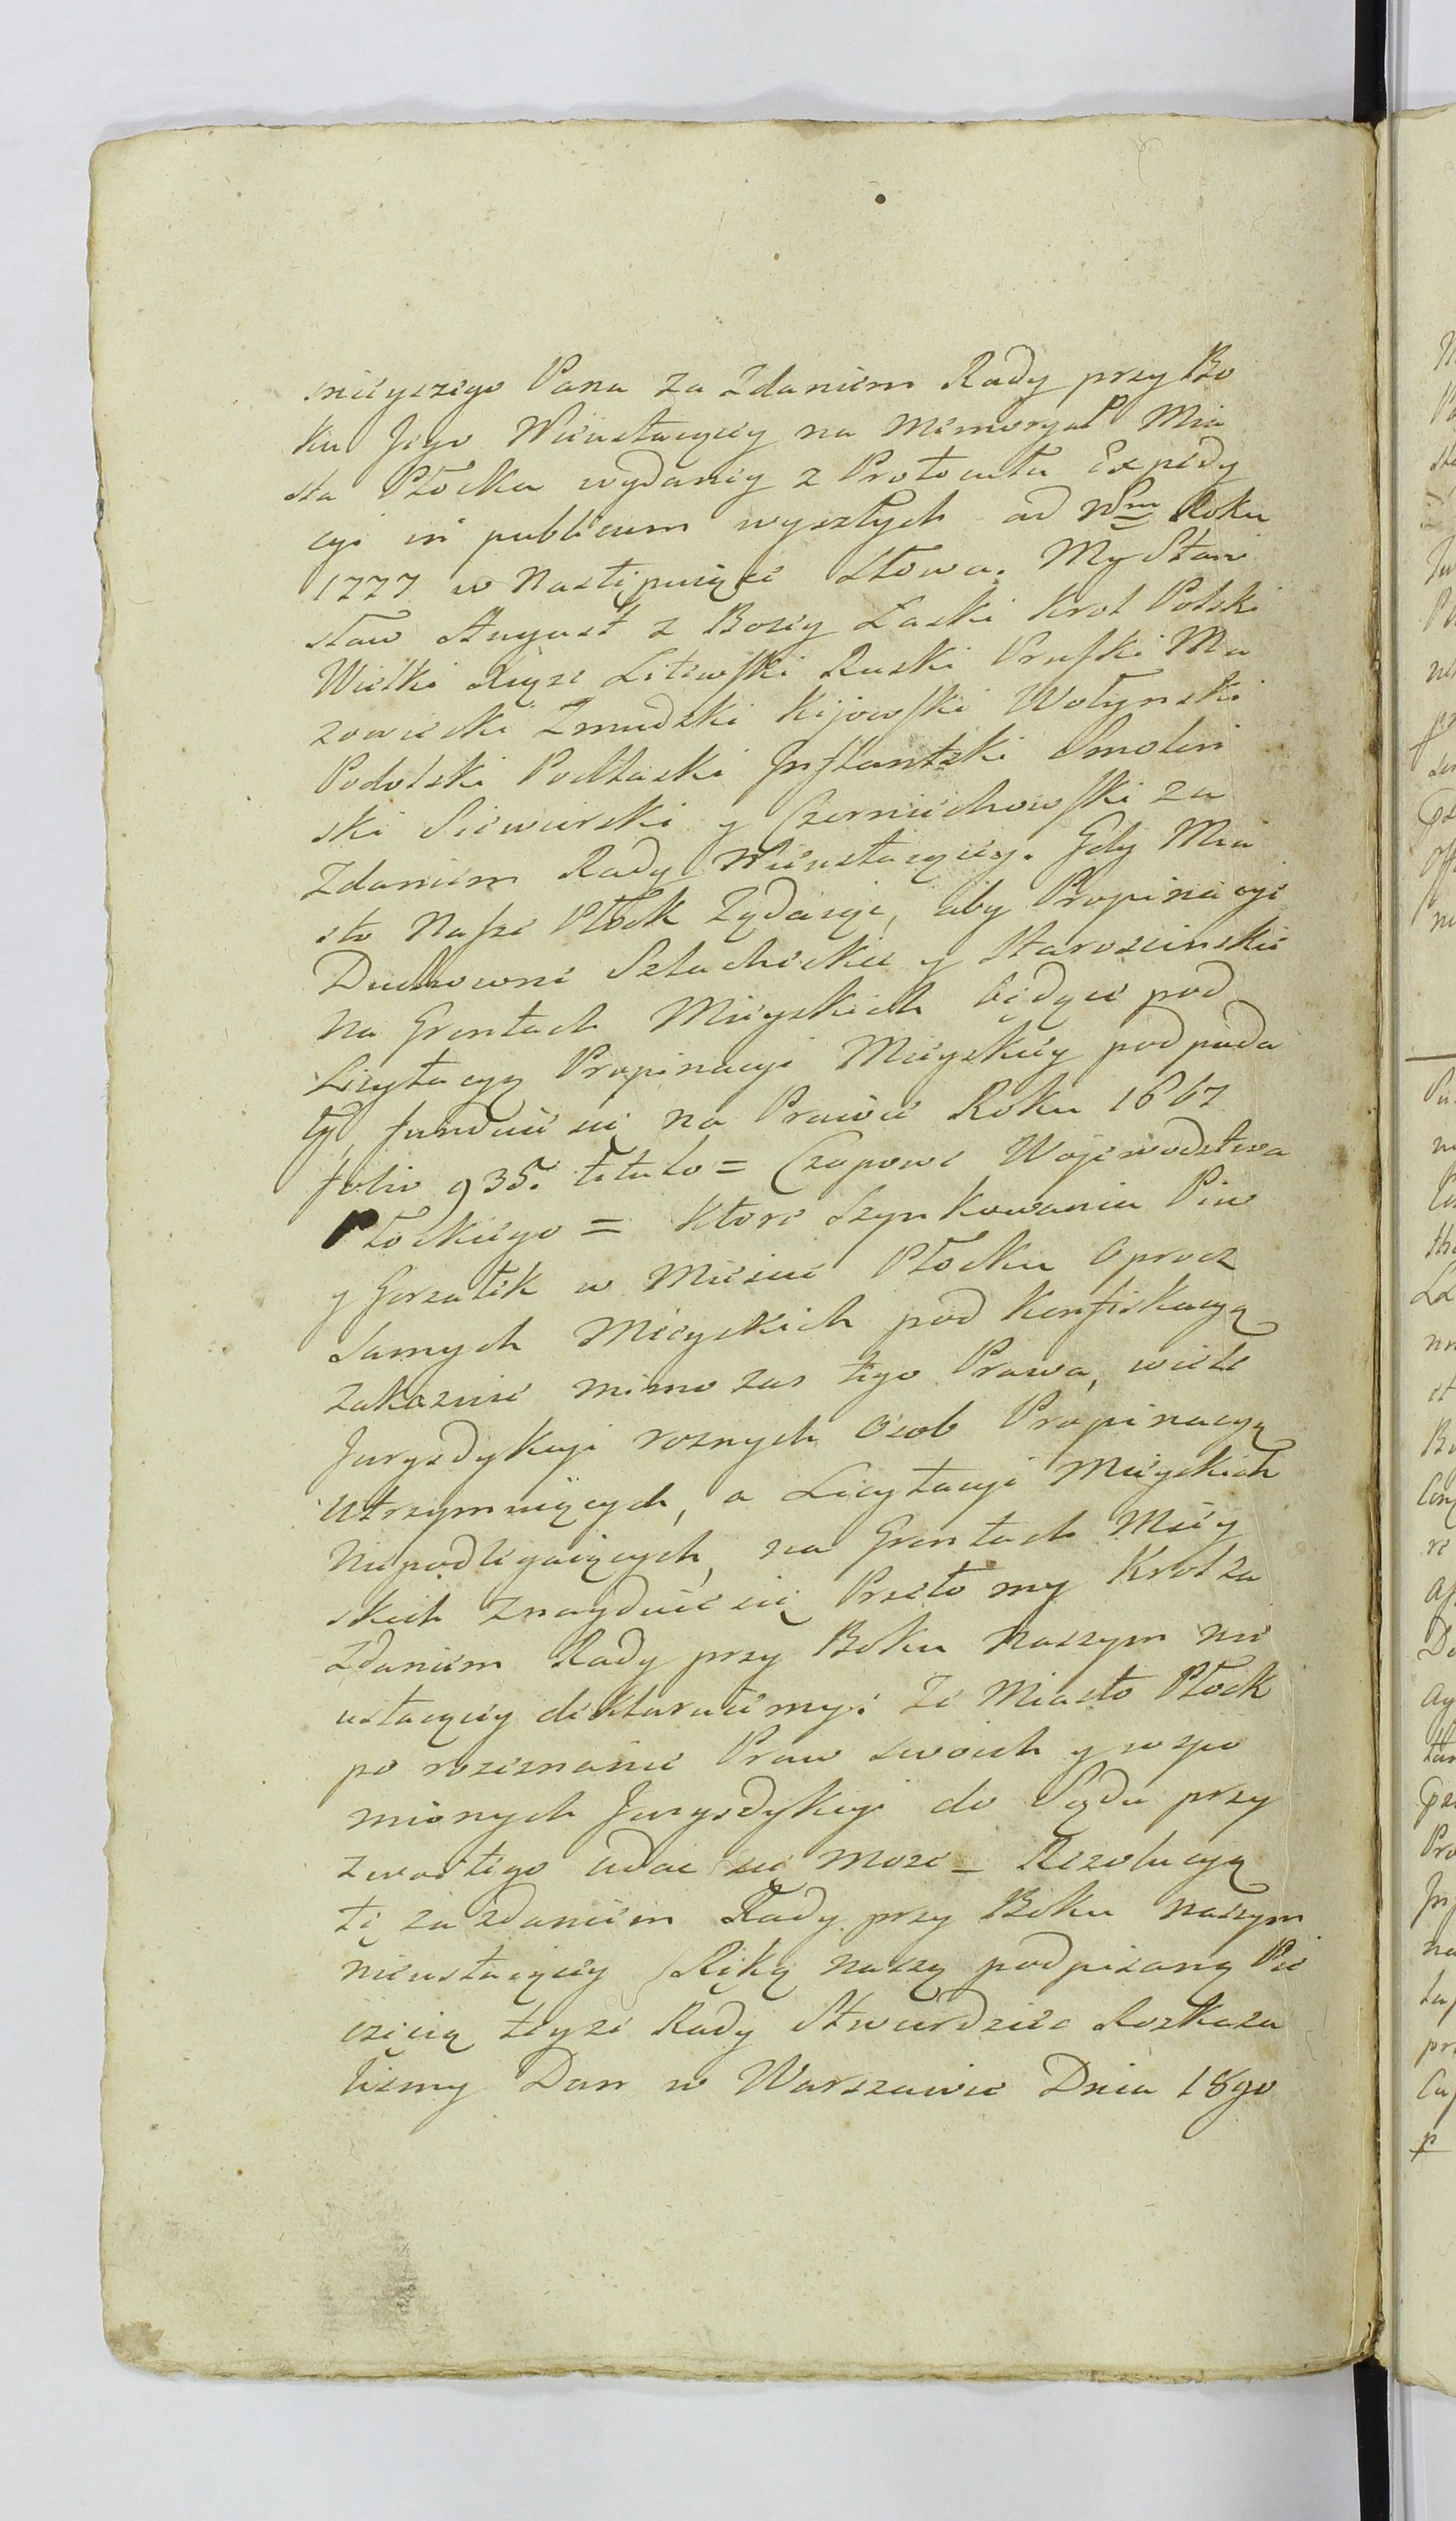 śnieyszego Pana za Zdaniem Rady przy Bo
ku Jego Nieustaiącey na Memoryał Mia
sta Płocka wydaney z Protokułu Expedy
cyi in publicum wyszłych ad Nrm Roku
1777 w Następuiące Słowa. My Stani
sław August z Bożey Łaski Krol Polski
Wielki Xiąże Litewski Ruski Pruski Ma
zowiecki Zmudzki Kijowski Wołynski
Podolski Podlaski Jnflantski Smoleń
ski Siewierski y Czerniechowski za
Zdaniem Rady Nieustaiącey. Gdy Mia
sto Nasze Płock Żądaiąc, aby Propinacye
Duchowne Szlacheckie y Starościnskie
na Gruntach Mieyskich będące pod
Licytacyą Propinacyi Mieyskiey podpada
ły, funduie się na Prawie Roku 1667
folio 935. titulo = Czopowe Wojewodztwa
Płockiego = ktore Szynkowania Piw
y Gorzałek w Mieście Płocku oprocz
Samych Mieyskich pod Konfiskacyą
zakazuie mimo zas tego Prawa, wiele
Jurysdykcyi roznych Osob Propinacyą
utrzymuiących, a Licytacyi Mieyskich
Niepodlegaiących, na Gruntach Miey
skich Znayduie się Przeto my Krol za
Zdaniem Rady przy Boku Naszym nie
ustaiącey deklaruiemy: że Miasto Płock
po rozeznanie Praw swoich y wspo
mionych Jurysdykcyi do Sądu przy
zwoitego udac się może _ Rezolucyą
tę za zdaniem Rady przy Boku Naszym
nieustaiącey Ręką naszą podpisaną Pie
częcią teyże Rady Stwierdzić Rozkaza
liśmy Dan w Warszawie Dnia 18go